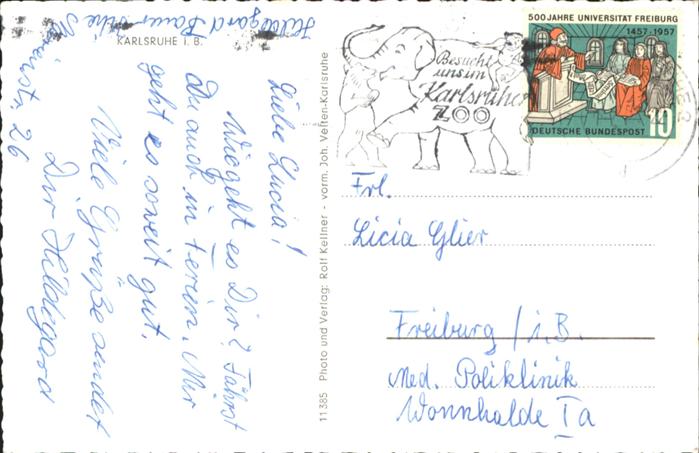 KARLSRUHE i. B.
Liebe Lucia!
Wie geht es Dir? Fährst
Du auch in Ferien. Mir
geht es soweit gut.
Viele Grüße sendet
Dir Hildegard
Hildegard
26
11 385 Photo und Verlag: Rolf Kellner - vorm. Joh. Velten-Karlsruhe
Besucht
uns im
Karlsruher
ZOO
500 JAHRE UNIVERSITÄT FREIBURG
1457-1957
DEUTSCHE BUNDESPOST
10
Frl.
Licia Glier
Freiburg / i. B.
Med. Poliklinik
Wonnhalde Ia